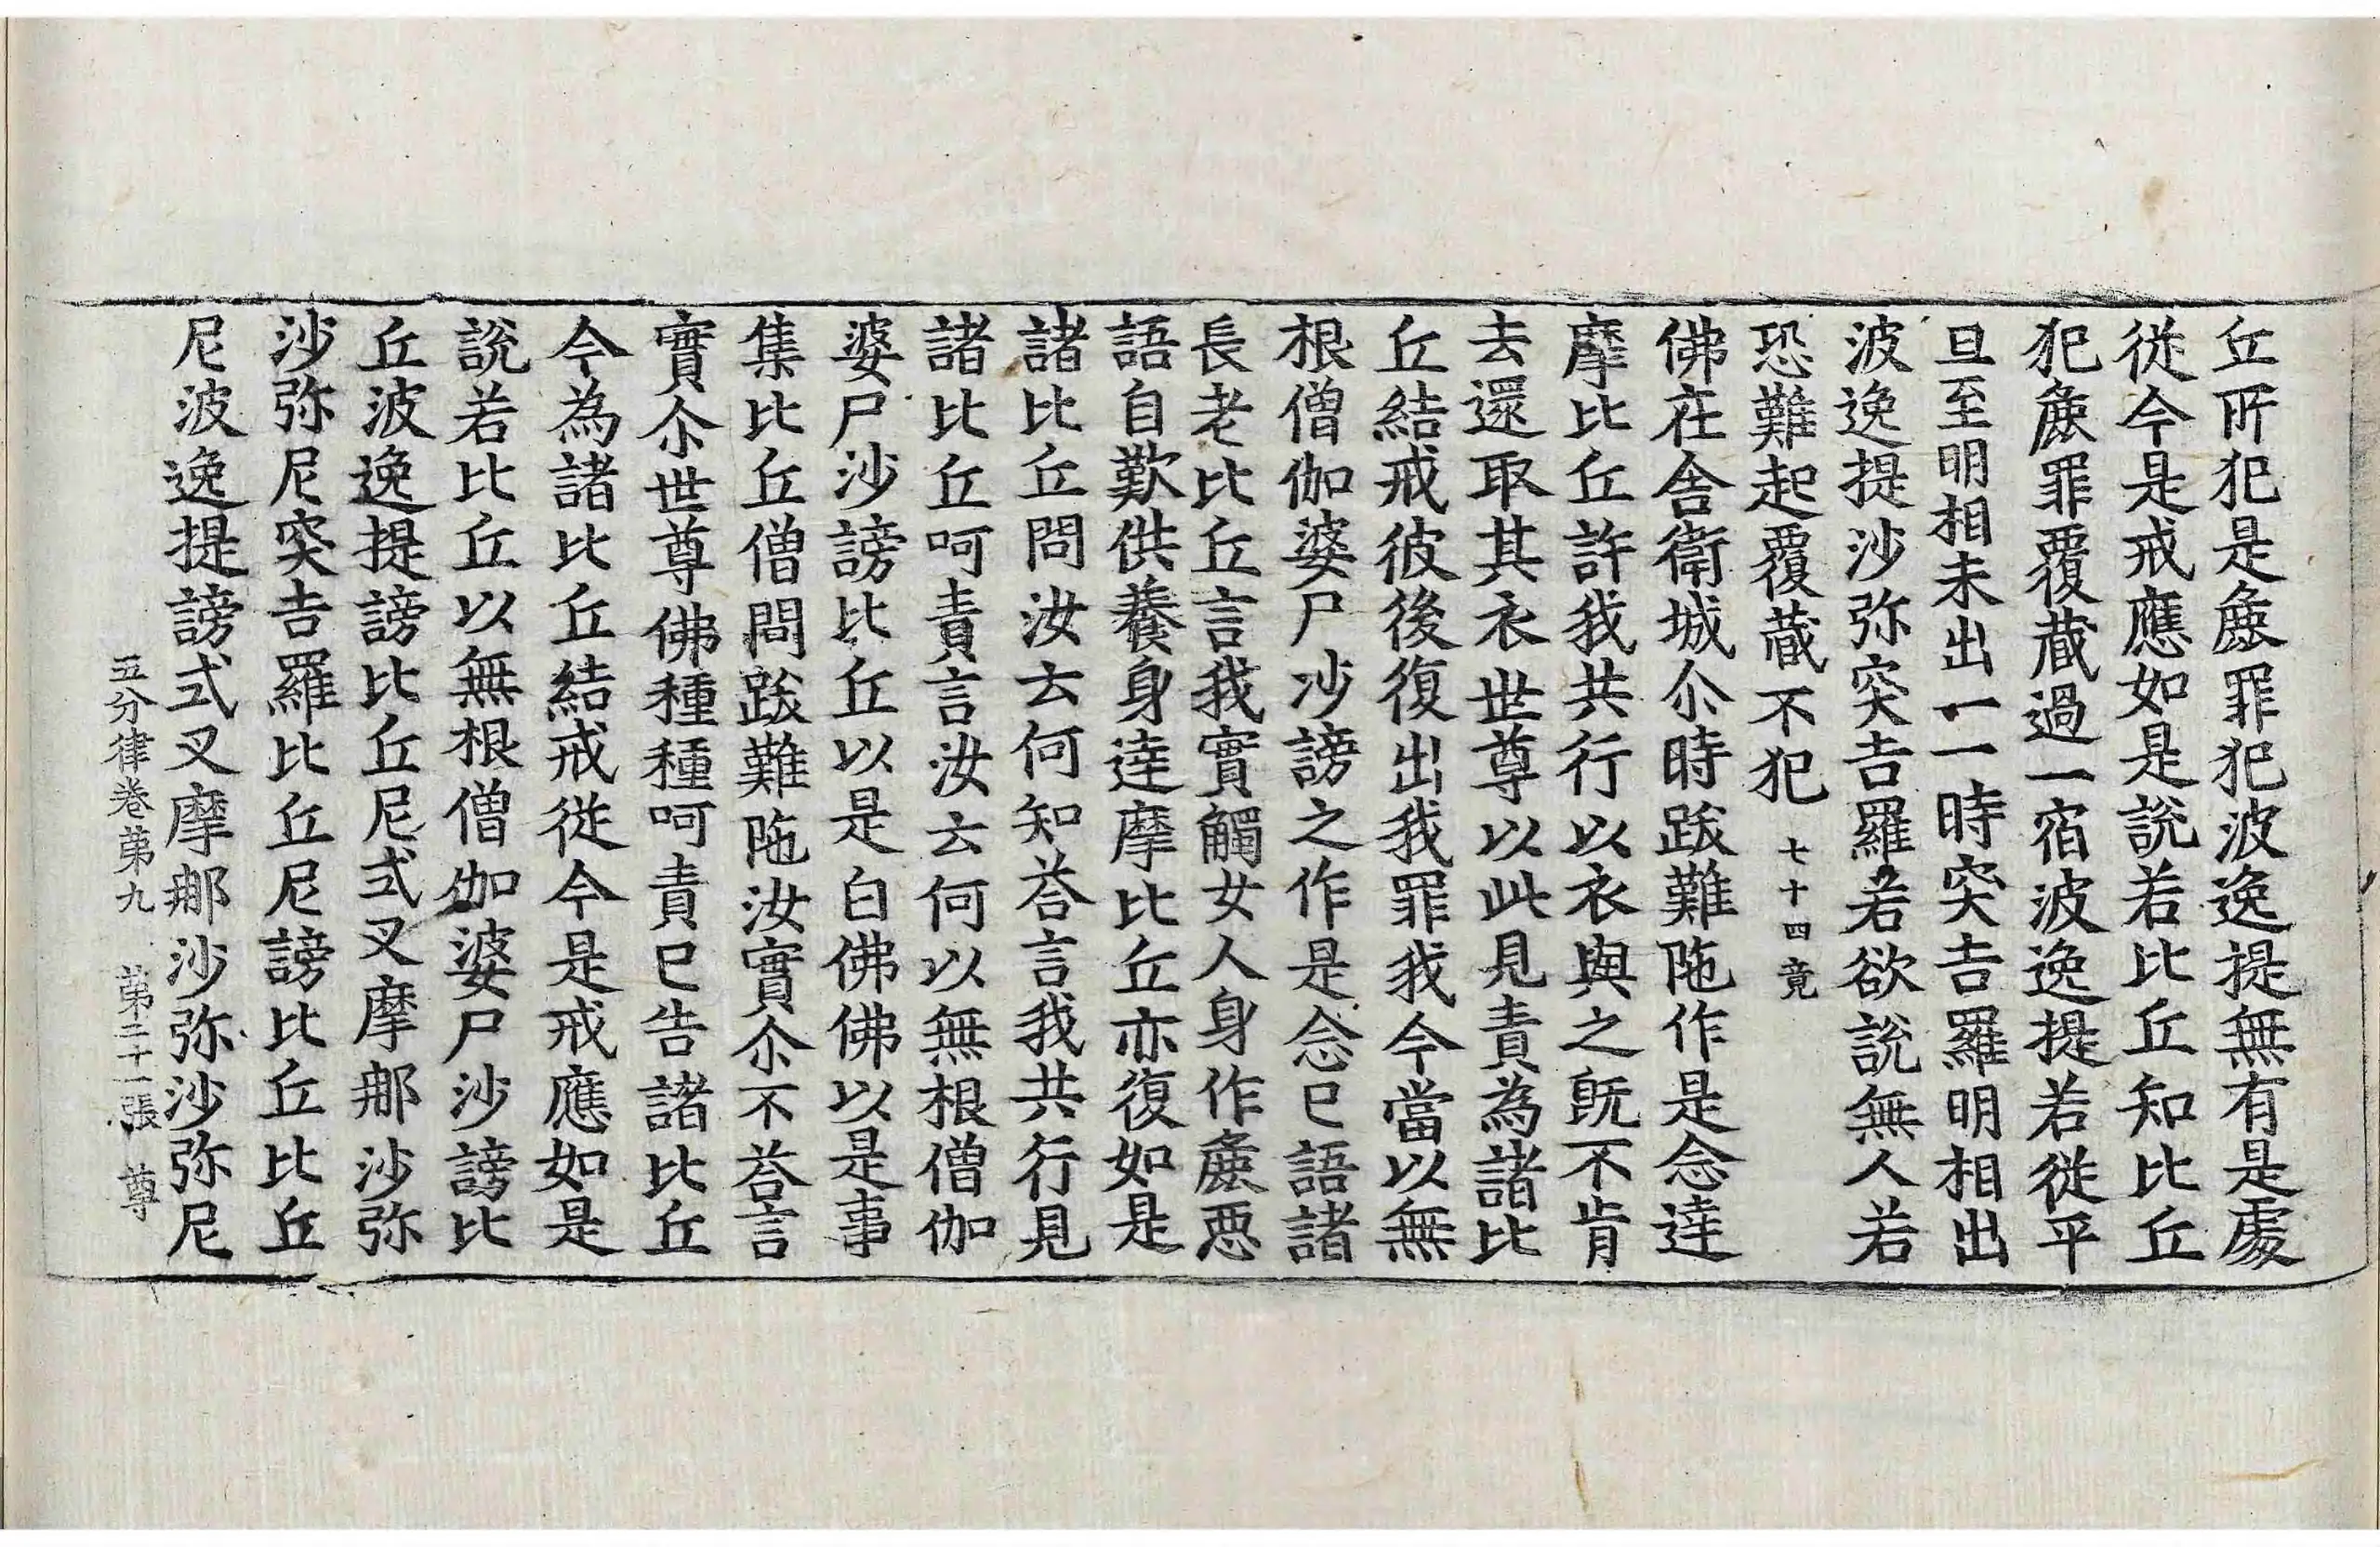 丘所犯是麁罪犯波逸提無有是處
從今是戒應如是說若比丘知比丘
犯麁罪覆蔵過一宿波逸提若從平
旦至明相未出一一時突吉羅明相出
波逸提沙弥突吉羅若欲說無人若
恐難起覆蔵不犯 七十四竟
佛在舍衛城尒時跋難陁作是念達
摩比丘許我共行以衣與之既不肯
去還取其衣世尊以此見責為諸比
丘結戒彼後復出我罪我今當以無
根僧伽婆尸沙謗之作是念已語諸
長老比丘言我實觸女人身作麁惡
語自歎供養身達摩比丘亦復如是
諸比丘問汝云何知荅言我共行見
諸比丘呵責言汝云何以無根僧伽
婆尸沙謗比丘以是白佛佛以是事
集比丘僧問跋難陁汝實尒不荅言
實尒世尊佛種種呵責已告諸比丘
今為諸比丘結戒從今是戒應如是
說若比丘以無根僧伽婆尸沙謗比
丘波逸提謗比丘尼式叉摩郍沙弥
沙弥尼突吉羅比丘尼謗比丘比丘
尼波逸提謗式叉摩郍沙弥沙弥尼
五分律卷苐九 苐二十一張 尊